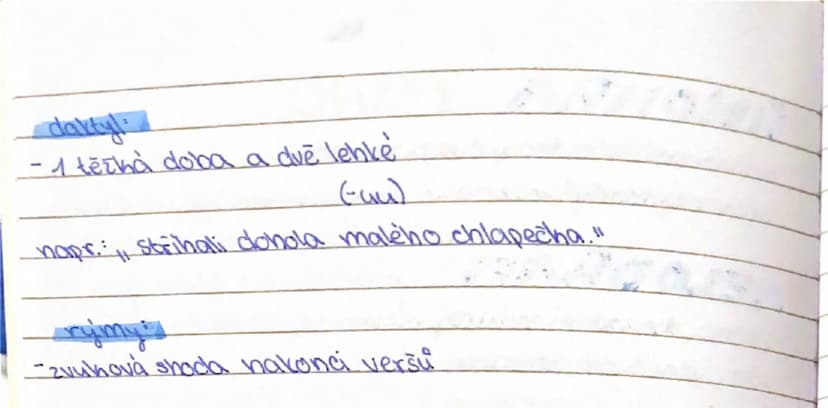 daktyl:
- 1 těžká doba a dvě lehké
(-uu)
např.: „Stříhali dohola malého chlapečka."
rýmy:
- zvuková shoda nakonci veršů